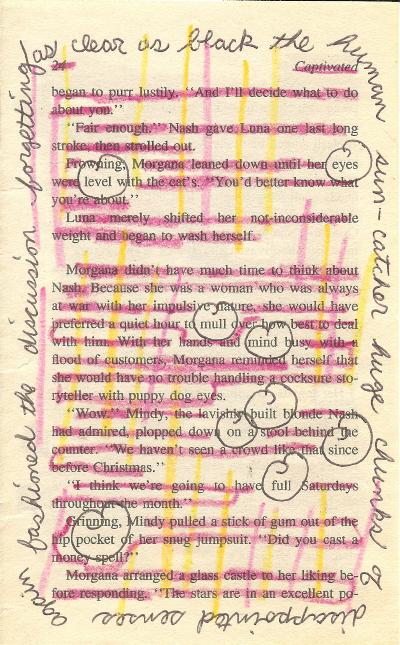 as clear as black the human sun-catcher huge chunks of
disappointed senses
again fashioned the discussion forgetting
24
Captivated
began to purr lustily. "And I'll decide what to do
about you."
"Fair enough." Nash gave Luna one last long
stroke, then strolled out.
Frowning, Morgana leaned down until her eyes
were level with the cat's. "You'd better know what
you're about."
Luna merely shifted her not-inconsiderable
weight and began to wash herself.
Morgana didn't have much time to think about
Nash. Because she was a woman who was always
at war with her impulsive nature, she would have
preferred a quiet hour to mull over how best to deal
with him. With her hands and mind busy with a
flood of customers, Morgana reminded herself that
she would have no trouble handling a cocksure sto-
ryteller with puppy dog eyes.
"Wow." Mindy, the lavishly built blonde Nash
had admired, plopped down on a stool behind the
counter. "We haven't seen a crowd like that since
before Christmas."
"I think we're going to have full Saturdays
throughout the month."
Grinning, Mindy pulled a stick of gum out of the
hip pocket of her snug jumpsuit. "Did you cast a
money spell?"
Morgana arranged a glass castle to her liking be-
fore responding. "The stars are in an excellent po-